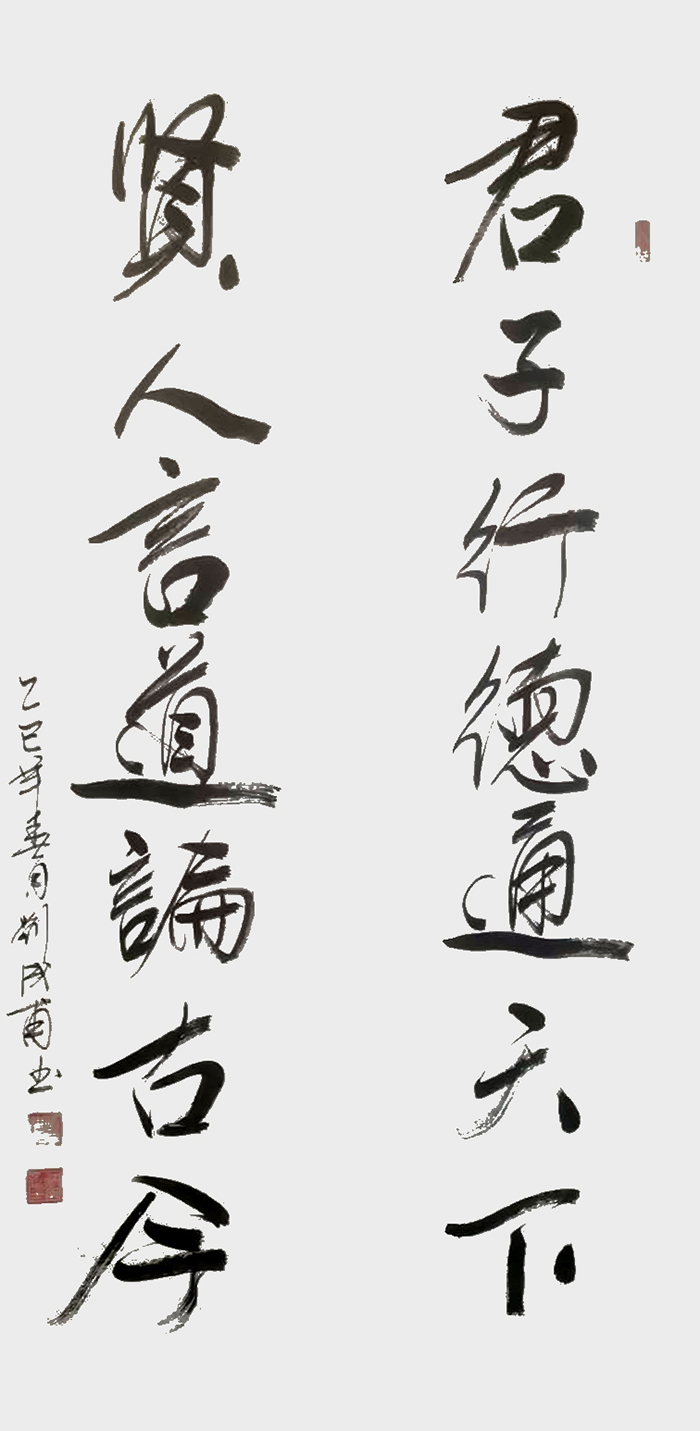 君子行德通天下
賢人言道論古今
乙巳年春月劉成甫书